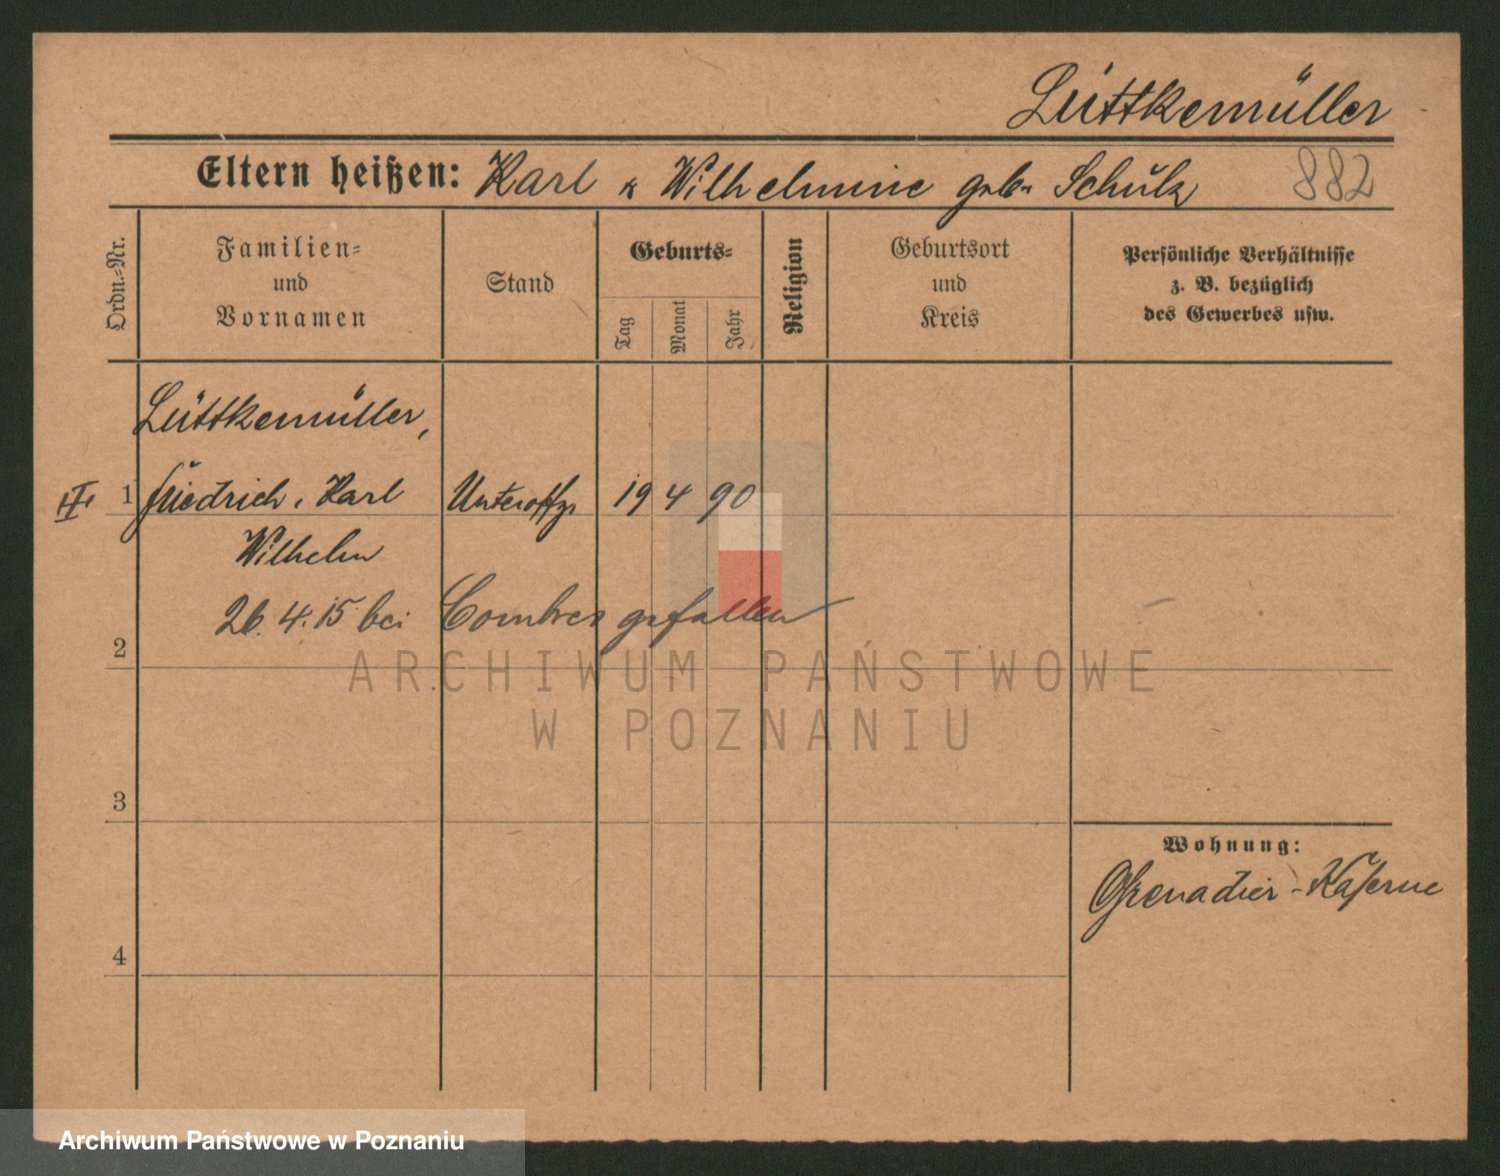 Lüttkemüller
Eltern heißen: Karl u Wilhelmine geb. Schulz
882
Ordn.-Nr.
Familien-
und
Vornamen
Stand
Geburts-
Tag
Monat
Jahr
Religion
Geburtsort
und
Kreis
Persönliche Verhältnisse
z. B. bezüglich
des Gewerbes usw.
Lüttkemüller,
III 1 Friedrich, Karl Unteroffz. 19 4 90
Wilhelm
26. 4. 15 bei Combres gefallen
2
ARCHIWUM PAŃSTWOWE
W POZNANIU
3
Wohnung:
Grenadier-Kaserne
4
Archiwum Państwowe w Poznaniu